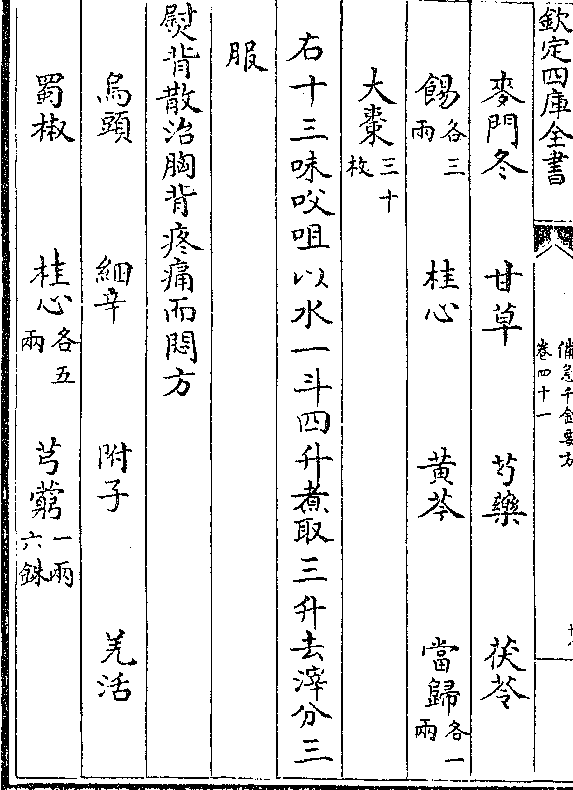 欽定四庫全書
備急千金要方
卷四十一
麥門冬 甘草 芍藥 茯苓
餳各三兩 桂心 黃芩 當歸各一兩
大棗三十枚
右十三味㕮咀以水一斗四升煮取三升去滓分三
服
熨背散治胸背疼痛而悶方
烏頭 細辛 附子 羌活
蜀椒 桂心各五兩 芎藭一兩六銖